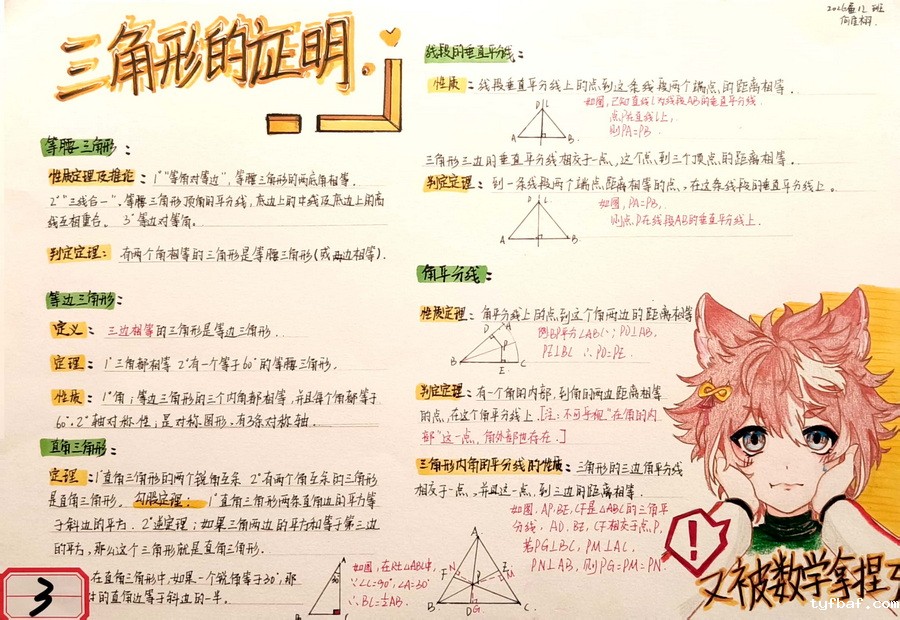 三角形的证明
等腰三角形：
性质定理及推论：1°"等角对等边"，等腰三角形的两底角相等．
2°"三线合一"．等腰三角形顶角的平分线，底边上的中线及底边上的高
线互相重合． 3°等边对等角．
判定定理：有两个角相等的三角形是等腰三角形(或两边相等)．
等边三角形：
定义：三边相等的三角形是等边三角形．
定理：1°三角都相等 2°有一个等于60°的等腰三角形．
性质：1°角；等边三角形的三个内角都相等，并且每个角都等于
60°．2°轴对称性；是对称图形．有3条对称轴．
直角三角形：
定理：1°直角三角形的两个锐角互余 2°有两个角互余的三角形
是直角三角形． 勾股定理：1°直角三角形两条直角边的平方等
于斜边的平方．2°逆定理：如果三角两边的平方和等于第三边
的平方，那么这个三角形就是直角三角形．
在直角三角形中，如果一个锐角等于30°，那
的直角边等于斜边的一半．
3
如图，在Rt△ABC中，
∵∠C=90°，∠A=30°
∴BC=½AB．
线段的垂直平分线：
性质：线段垂直平分线上的点到这条线段两个端点的距离相等．
如图，已知直线l为线段AB的垂直平分线．
点P在直线l上，
则PA=PB．
A
B
三角形三边的垂直平分线相交于一点，这个点到三个顶点的距离相等．
判定定理：到一条线段两个端点距离相等的点，在这条线段的垂直平分线上。
如图，PA=PB，
则点P在线段AB的垂直平分线上．
A
B
角平分线：
性质定理：角平分线上的点到这个角两边的距离相等
则BP平分∠ABC；PD⊥AB，
PE⊥BC ∴PD=PE．
D
A
P
B
E
C
判定定理：有一个角的内部，到角的两边距离相等
的点，在这个角平分线上．[注：不可忽视"在角的内
部"这一点，角外部也存在．]
三角形内角的平分线的性质：三角形的三边角平分线
相交于一点，并且这一点到三边的距离相等．
如图，AP，BE，CF是△ABC的三角平
分线，AD，BE，CF相交于点P，
若PG⊥BC，PM⊥AC，
PN⊥AB，则PG=PM=PN．
A
F
N
E
M
P
B
D
G
C
!
又被数学拿捏了
tyfbaf.com